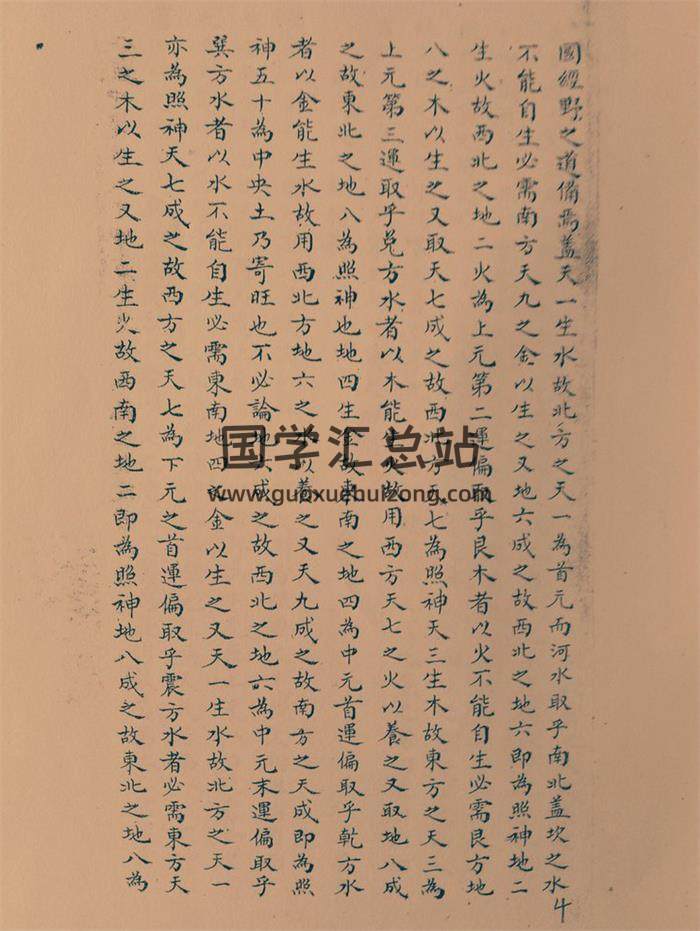 國經野之道備焉蓋天一生水故北方之天一為首元而河水取乎南北蓋坎之水
不能自生必需南方天九之金以生之又地六成之故西北之地六即為照神地二
生火故西北之地二火為上元第二運偏取乎艮木者以火不能自生必需艮方地
八之木以生之又取天七成之故西北方天七為照神天三生木故東方之天三為
上元第三運取乎兌方水者以木能生火故用西方天七之火以養之又取地八成
之故東北之地八為照神也地四生金故東南之地四為中元首運偏取乎乾方水
者以金能生水故用西北方地六之水以養之又天九成之故南方之天成即為照
神五十為中央土乃寄旺也不必論地六成之故西北之地六為中元末運偏取乎
巽方水者以水不能自生必需東南地四之金以生之又天一生水故北方之天一
亦為照神天七成之故西方之天七為下元之首運偏取乎震方水者必需東方天
三之木以生之又地二生火故西南之地二即為照神地八成之故東北之地八為
国学汇总站
www.guoxuehuizong.com